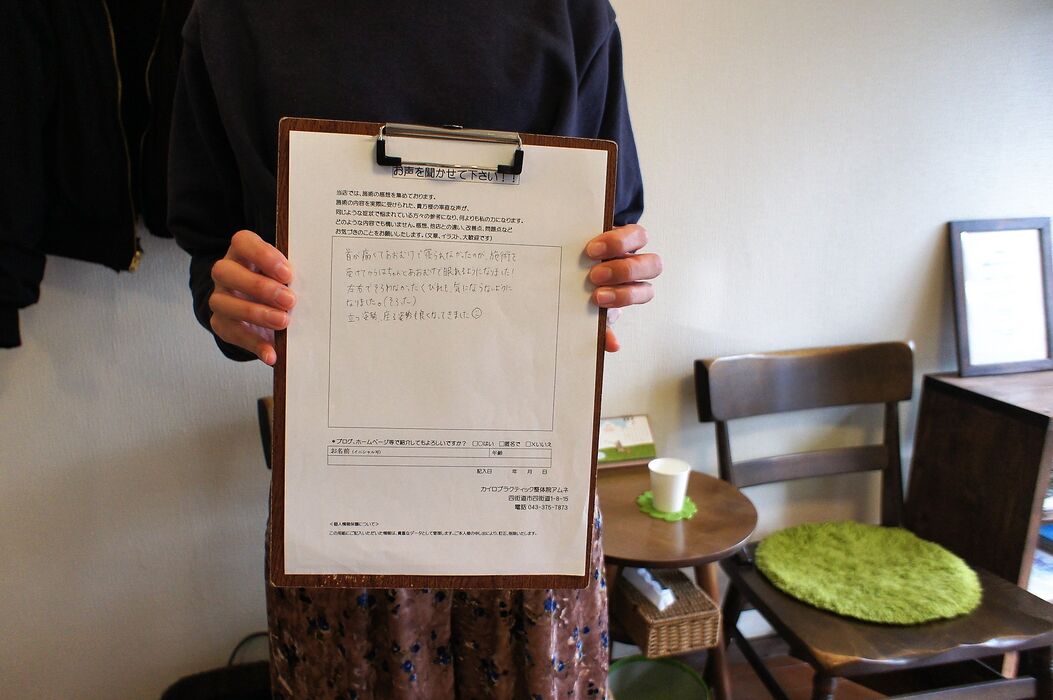 お声を聞かせて下さい！！
当店では、施術の感想を集めております。
施術の内容を実際に受けられた、貴方様の率直な声が、
同じような症状で悩まれている方々の参考になり、何よりも私の力になります。
どのような内容でも構いません。感想、他店との違い、改善点、問題点など
お気づきのことをお願いしたします。（文章、イラスト、大歓迎です）
首が痛くてあおむけで寝られなかったのが、施術を
受けてからはちゃんとあおむけで眠れるようになりました！
左右でそろわなかったくびれも、気にならないように
なりました。（そろった）
立つ姿勢、座る姿勢も良くなってきました
＊ブログ、ホームページ等で紹介してもよろしいですか？ □○はい □匿名で □×いいえ
お名前（イニシャル可） 年齢
記入日 年 月 日
カイロプラクティック整体院アムネ
四街道市四街道1-8-15
電話 043-375-7873
＜個人情報保護について＞
この用紙にご記入いただいた情報は、貴重なデータとして管理します。ご本人様の申し出により、訂正、削除いたします。